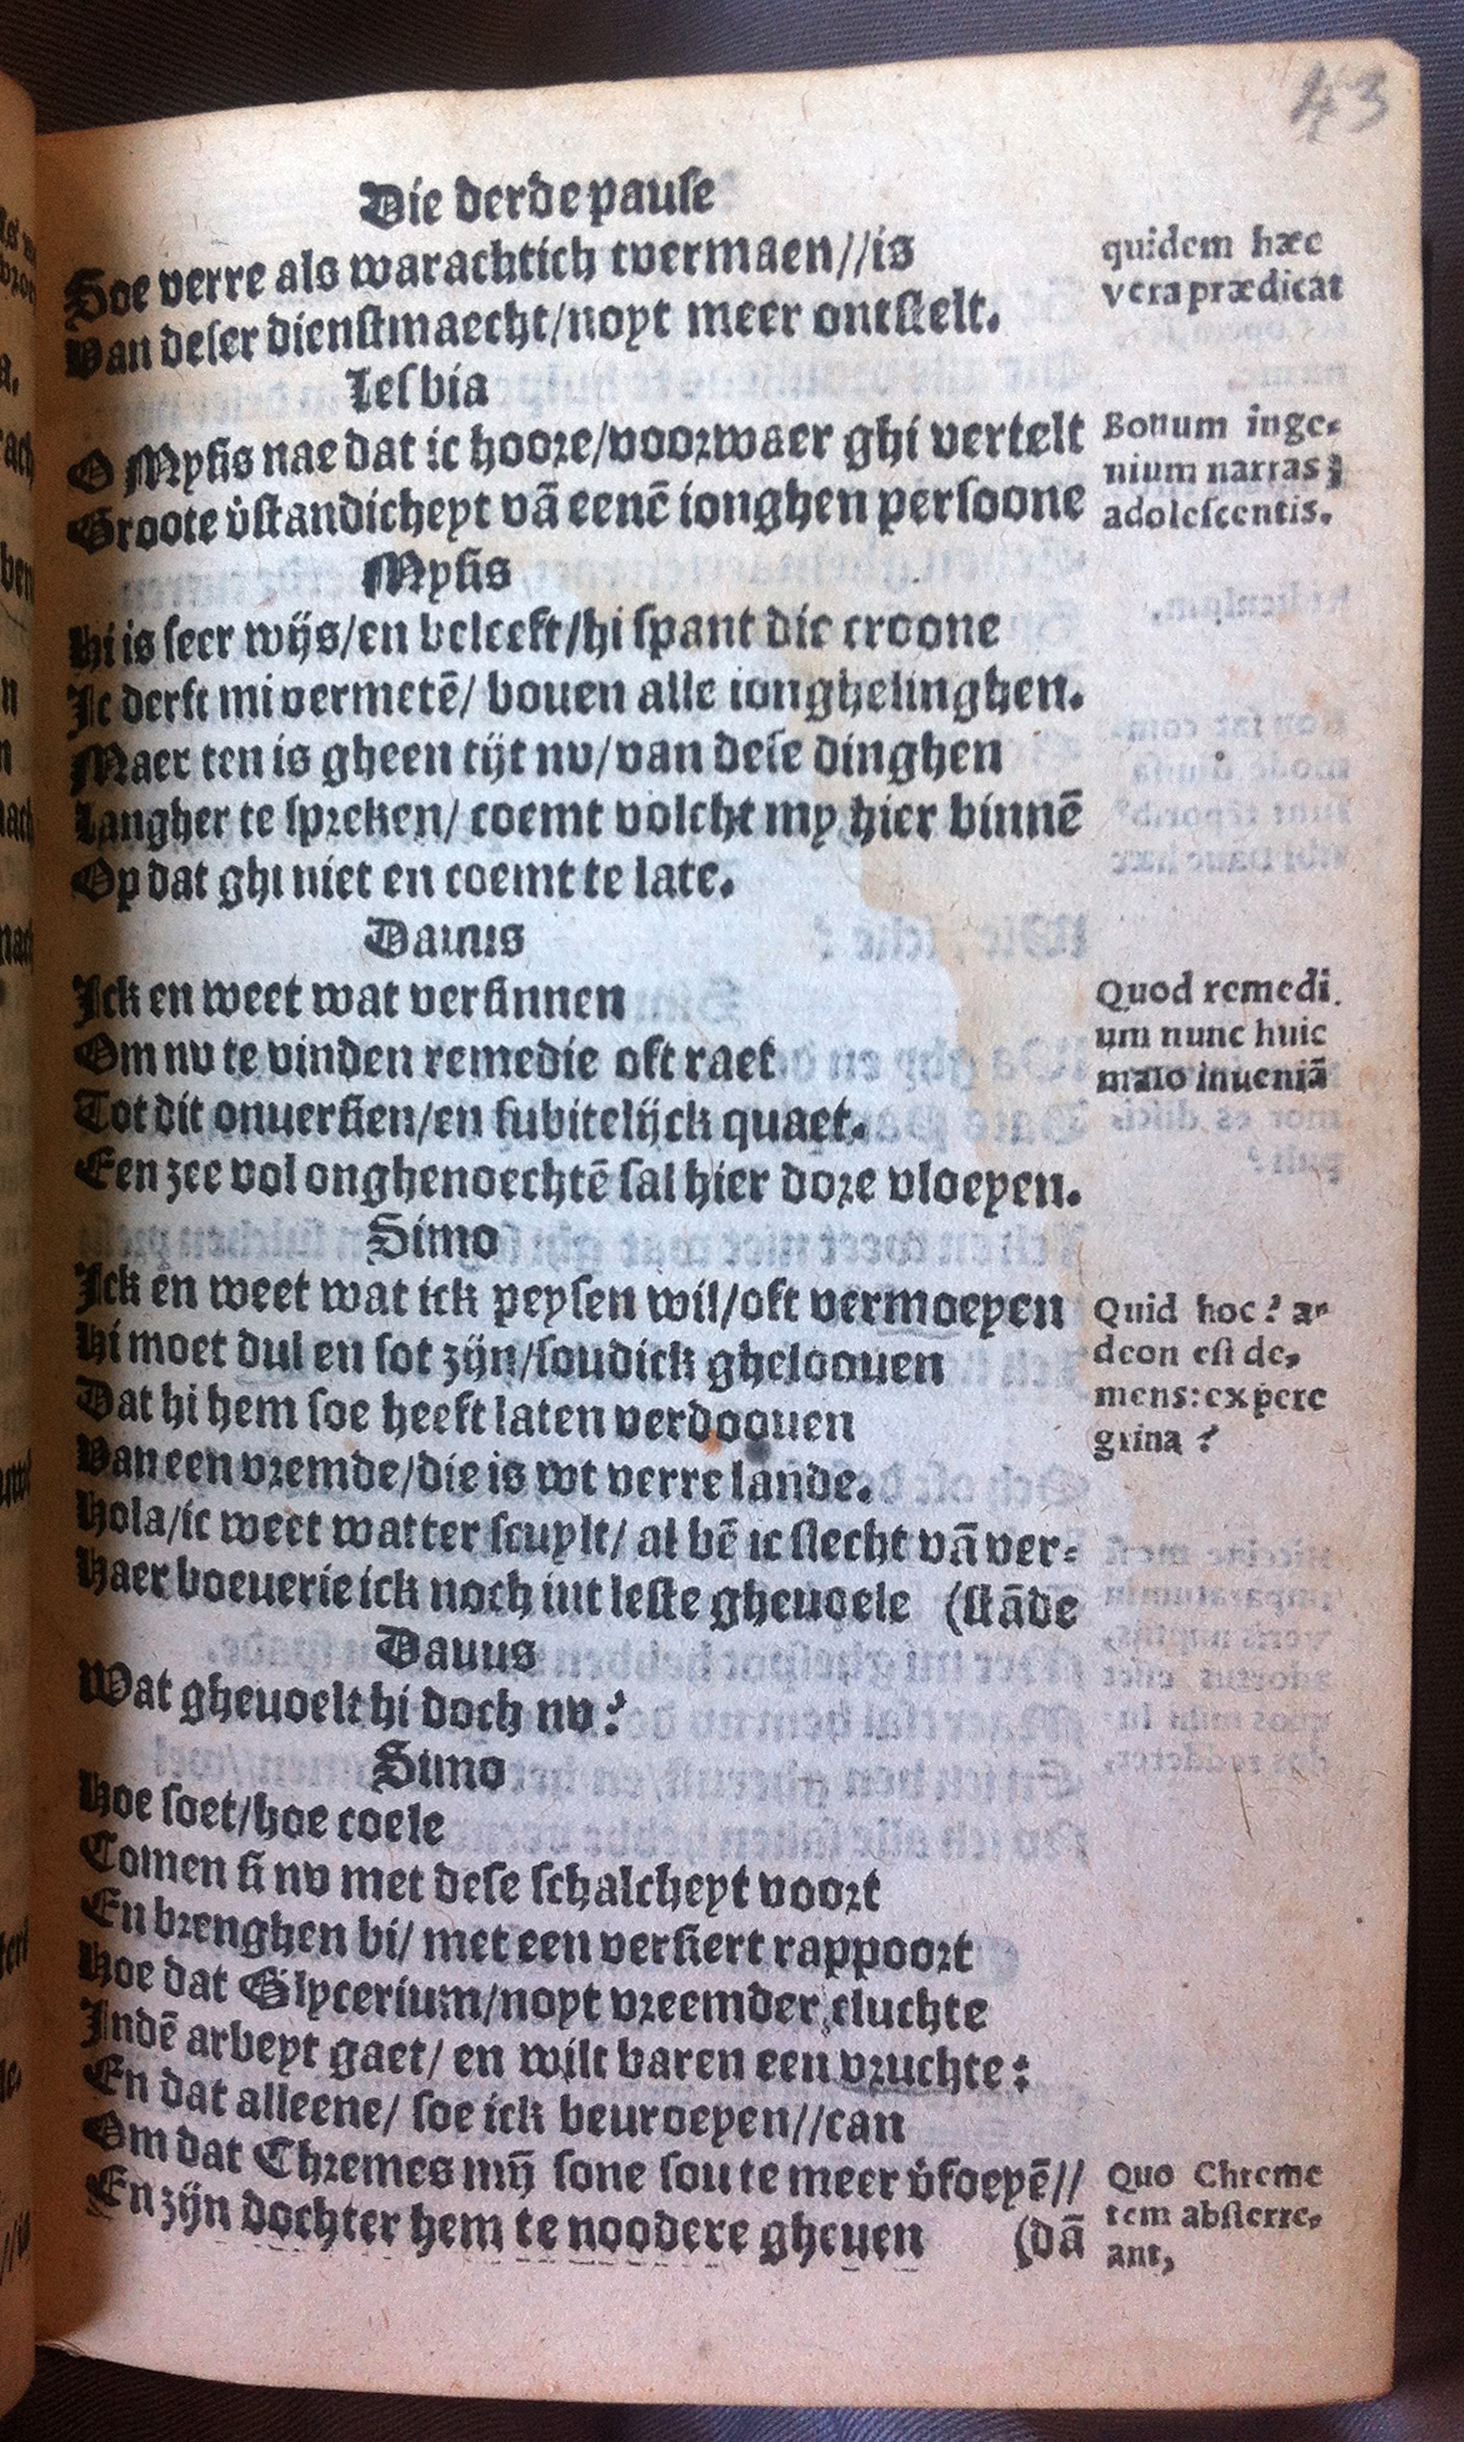 43
Die derde pause
Hoe verre als warachtich tvermaen//is
Van deser dienstmaecht/noyt meer ontstelt.
Lesbia
O Mysis nae dat ic hoore/voorwaer ghi vertelt
Groote v̄standicheyt vā eenē ionghen persoone
Mysis
Hi is seer wijs/en beleeft/hi spant die croone
Ic derft mi vermetē/ bouen alle ionghelinghen.
Maer ten is gheen tijt nv/van dese dinghen
Langher te spreken/ coemt volcht my hier binnē
Op dat ghi niet en coemt te late.
Dauus
Ick en weet wat versinnen
Om nv te vinden remedie oft raet
Tot dit onuersien/en subitelijck quaet.
Een zee vol onghenoechtē sal hier dore vloeyen.
Simo
Ick en weet wat ick peysen wil/oft vermoeyen
Hi moet dul en sot zijn/soudick gheloouen
Dat hi hem soe heeft laten verdoouen
Van een vremde/die is wt verre lande.
Hola/ic weet watter scuylt/ al bē ic slecht vā ver-
Haer boeuerie ick noch int leste gheuoele (stāde
Dauus
Wat gheuoelt hi doch nv?
Simo
Hoe soet/hoe coele
Comen si nv met dese schalcheyt voort
En brenghen bi/ met een versiert rappoort
Hoe dat Glycerium/noyt vreemder cluchte
Indē arbeyt gaet/ en wilt baren een vruchte:
En dat alleene/ soe ick beuroeyen//can
Om dat Chremes mij̄ sone sou te meer v̄foeyē//
En zijn dochter hem te noodere gheuen (dā
quidem hæc
vera prædicat
Bonum inge-
nium narras
adolescentis.
Quod remedi
um nunc huic
malo inueniā
Quid hoc? a-
deon est de-
mens: ex pere
grina?
Quo Chreme
tem absterre-
ant,